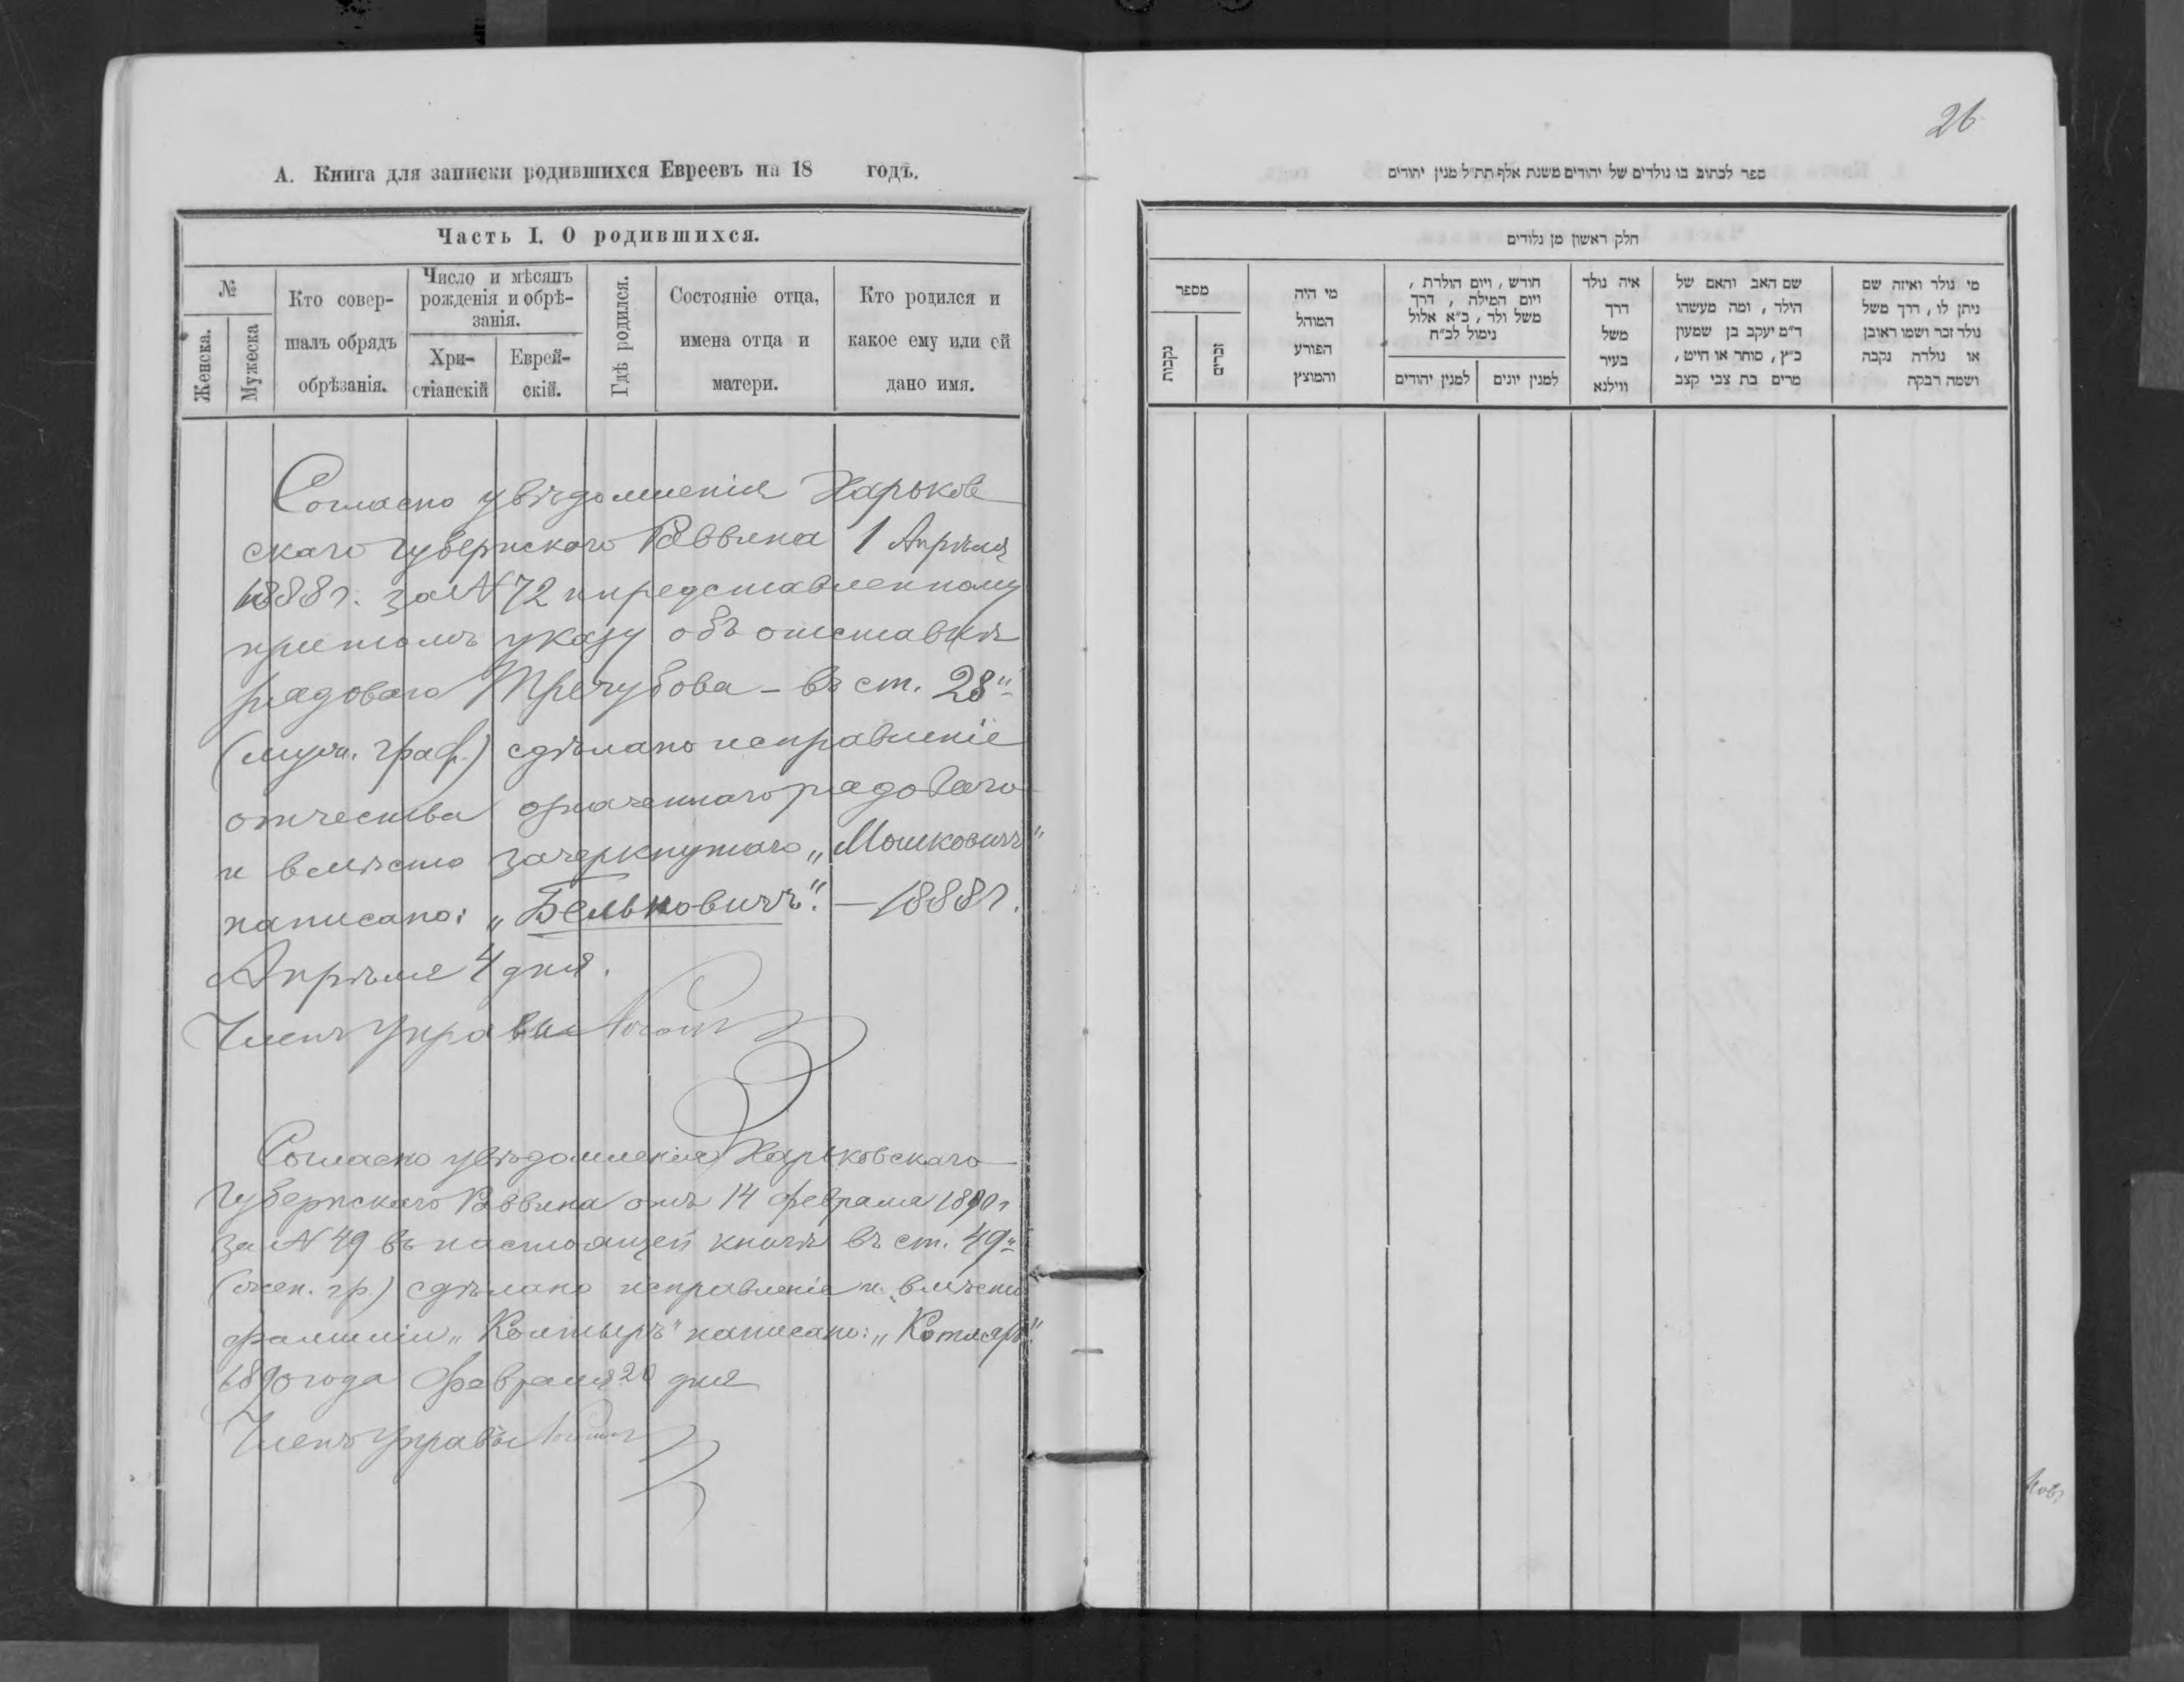 А. Книга для записки родившихся Евреевъ на 18 годъ.
Часть I. О родившихся.
№
Женска.
Мужеска
Кто совер-
шалъ обрядъ
обрѣзанія.
Число и мѣсяцъ
рожденія и обрѣ-
занія.
Хри-
стіанскій
Еврей-
скій.
Гдѣ родился.
Состояніе отца,
имена отца и
матери.
Кто родился и
какое ему или ей
дано имя.
Согласно увѣдомленія Харьков
скаго Губернскаго Раввина 1 Апрѣля
1888 г. за № 72 и представленному
притомъ указу объ отставкѣ
рядоваго Тречубова – въ ст. 28"
(муж. граф.) сдѣлано исправленіе
отчества означеннаго рядоваго
и вмѣсто зачеркнутаго „Мошковичъ"
написано: „Бельковичъ". – 1888 г.
Апрѣля 4 дня.
Членъ Управы
Согласно увѣдомленія Харьковскаго
Губернскаго Раввина отъ 14 февраля 1890 г
за № 49 въ настоящей книгѣ въ ст. 49"
(жен. гр.) сдѣлано исправленіе и вмѣсто
фамиліи „Колтыръ" написано: „Котляръ"
1890 года Февраля 20 дня
Членъ Управы
26
ספר לכתוב בו נולדים של יהודים משנת אלף תת"ל מנין יהודים
חלק ראשון מן נלודים
מספר
נקבות
זכרים
מי היה
המוהל
הפורע
והמוצץ
חודש, ויום הולדת,
ויום המילה, דרך
משל ולד, כ"א אלול
נימול לכ"ח
למנין יהודים
למנין יונים
איה נולד
דרך
משל
בעיר
ווילנא
שם האב והאם של
הילד, ומה מעשהו
ד"מ יעקב בן שמעון
כ"ץ, סוחר או חייט,
מרים בת צבי קצב
מי נולד ואיזה שם
ניתן לו, דרך משל
נולד זכר ושמו ראובן
או נולדה נקבה
ושמה רבקה